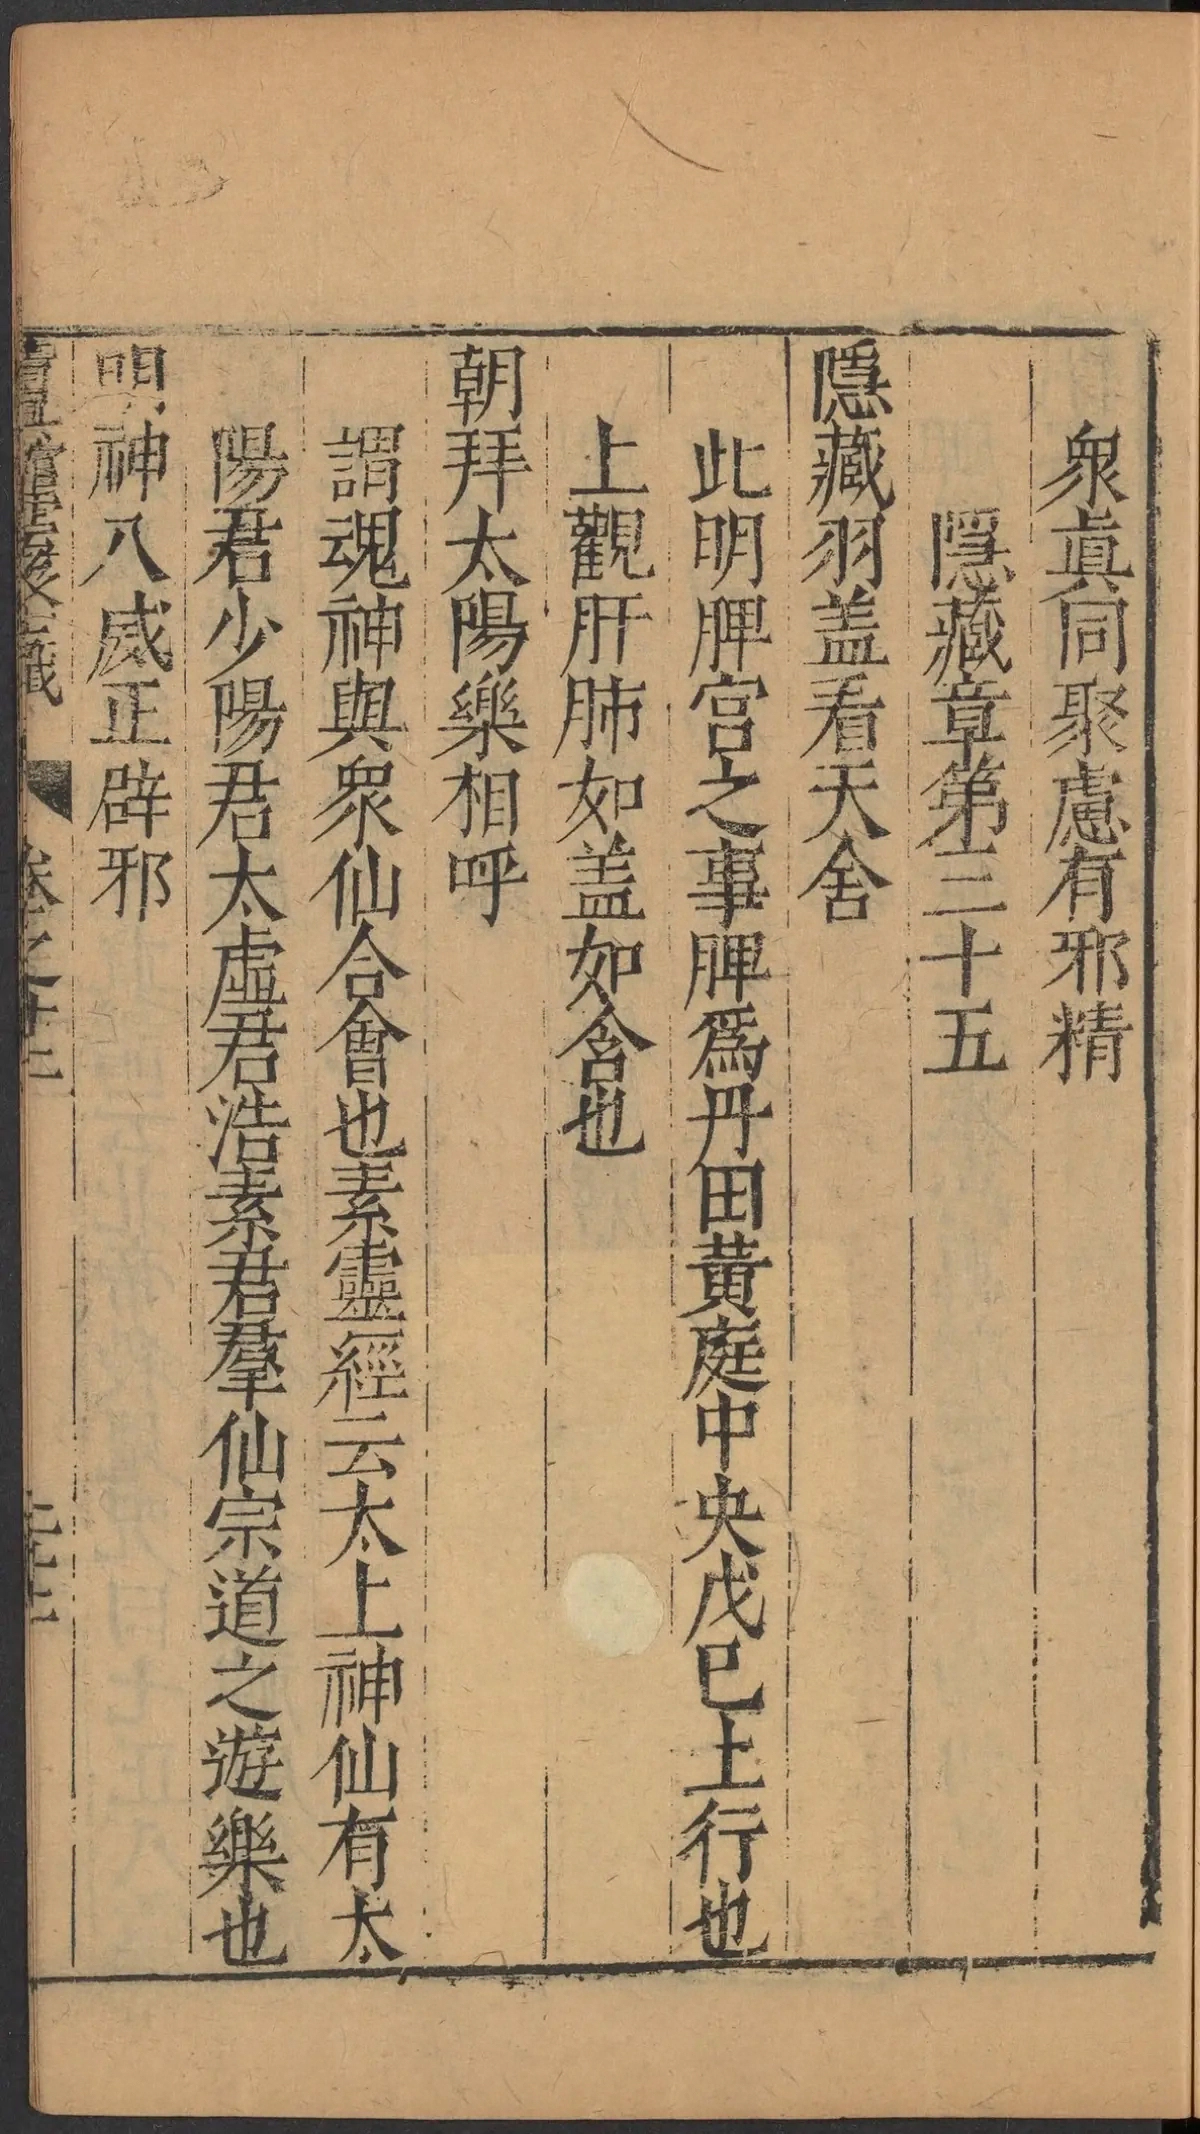 衆真同聚慮有邪精
隱藏章第三十五
隱藏羽盖看天舍
此明脾宫之事脾爲丹田黄庭中央戊巳土行也
上觀肝肺如盖如舍也
朝拜太陽樂相呼
謂魂神與衆仙合會也素靈經云太上神仙有太
陽君少陽君太虛君浩素君羣仙宗道之遊樂也
明神八威正辟邪